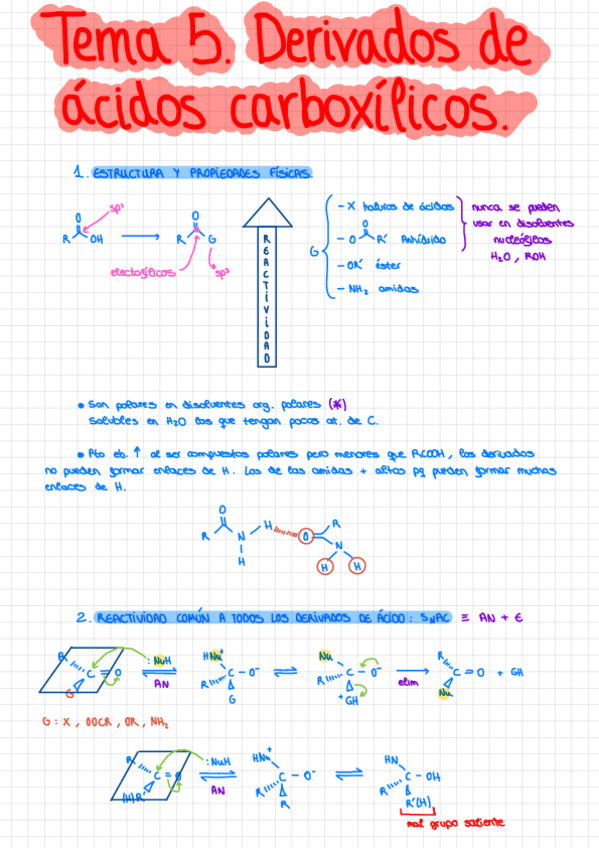 Tema 5. Derivados de
ácidos carboxílicos.
1. ESTRUCTURA Y PROPIEDADES FÍSICAS.
sp²
O
R OH
O
R G
electrofílicos
sp³
REACTIVIDAD
G
- X haluros de ácidos
- O O R' Anhídrido
- OR' éster
- NH₂ amidas
nunca se pueden
usar en disolventes
nucleófilicos
H₂O, ROH
• Son polares en disolventes org. polares (*)
Solubles en H₂O los que tengan pocos at. de C.
• Pto eb. ↑ al ser compuestos polares pero menores que RCOOH, los derivados
no pueden formar enlaces de H. Los de las amidas + altos pq pueden formar muchas
enlaces de H.
O
R N H O R
H N
H H
2. REACTIVIDAD COMÚN A TODOS LOS DERIVADOS DE ÁCIDO: SNAC ≡ AN + E
R C = O G
:NuH
AN
HNu⁺
R C - O⁻
G
Nu
R C - O⁻
⁺GH
elim
R
C = O + GH
Nu
G: X, OOCR, OR, NH₂
R C = O (H)R'
:NuH
AN
HNu⁺
R C - O⁻
R
HN
R C - OH
R'(H)
mal grupo saliente